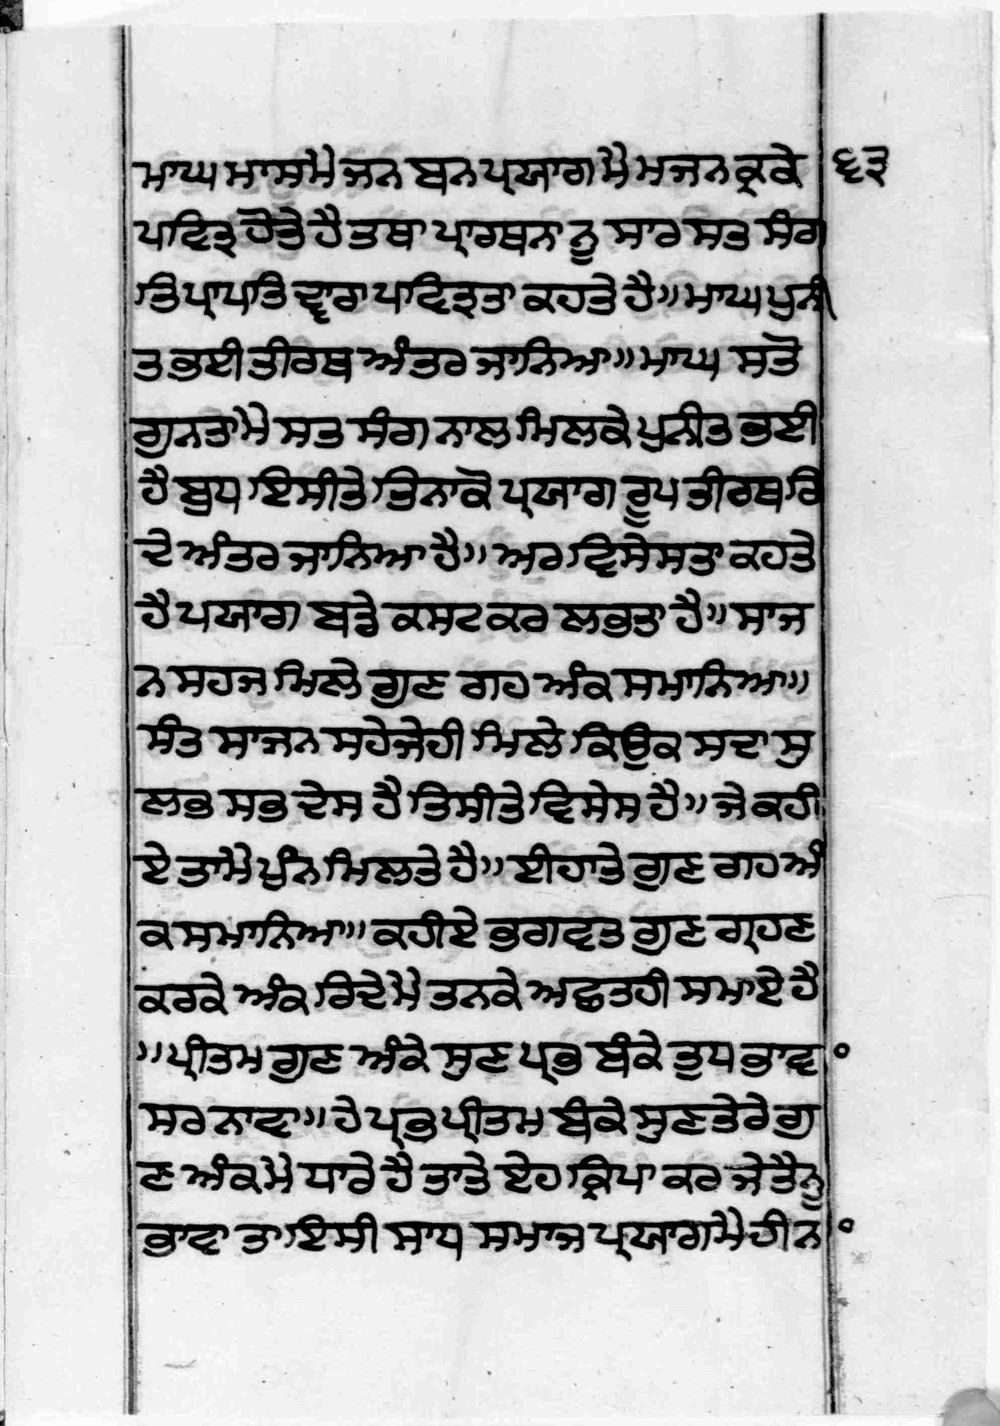 ਮਾਘ ਮਾਸਮੈ ਜਨ ਬਨ ਪ੍ਰਯਾਗ ਮੈ ਮਜਨ ਕ੍ਰਕੇ ੬੩
ਪਵਿਤ੍ਰ ਹੋਤੇ ਹੈ ਤਥਾ ਪ੍ਰਾਰਥਨਾ ਨੂ ਸਾਰ ਸਤ ਸੰਗ
ਤਿ ਪ੍ਰਾਪਤਿ ਦ੍ਵਾਰਾ ਪਵਿਤ੍ਰਤਾ ਕਹਤੇ ਹੈ॥ ਮਾਘ ਪੁਨੀ
ਤ ਭਈ ਤੀਰਥ ਅੰਤਰ ਜਾਨਿਆ॥ ਮਾਘ ਸਤੋ
ਗੁਨਤਾਮੇ ਸਤ ਸੰਗ ਨਾਲ ਮਿਲਕੇ ਪੁਨੀਤ ਭਈ
ਹੈ ਬੁਧ ਇਸੀਤੇ ਤਿਨਾਕੋ ਪ੍ਰਯਾਗ ਰੂਪ ਤੀਰਥ ਰਿ
ਦੇ ਅੰਤਰ ਜਾਨਿਆ ਹੈ॥ ਅਰ ਵਿਸੇਸਤਾ ਕਹਤੇ
ਹੈ ਪਯਾਗ ਬਡੇ ਕਸਟ ਕਰ ਲਭਤਾ ਹੈ॥ ਸਾਜ
ਨ ਸਹਜ ਮਿਲੇ ਗੁਣ ਗਹ ਅੰਕ ਸਮਾਨਿਆ॥
ਸੰਤ ਸਾਜਨ ਸਹੇਜੇਹੀ ਮਿਲੇ ਕਿਉਕ ਸਦਾ ਸੁ
ਲਭ ਸਭ ਦੇਸ ਹੈ ਤਿਸੀਤੇ ਵਿਸੇਸ ਹੈ॥ ਜੇ ਕਹੀ
ਏ ਤਾਮੇ ਪੁੰਨ ਮਿਲਤੇ ਹੈ॥ ਈਹਾਤੇ ਗੁਣ ਗਹ ਅੰ
ਕ ਸਮਾਨਿਆ॥ ਕਹੀਏ ਭਗਵਤ ਗੁਣ ਗ੍ਰਹਣ
ਕਰਕੇ ਅੰਕ ਰਿਦੇਮੇ ਤਨਕੇ ਅਛਤਹੀ ਸਮਾਏ ਹੈ
॥ ਪ੍ਰੀਤਮ ਗੁਣ ਅੰਕੇ ਸੁਣ ਪ੍ਰਭ ਬੰਕੇ ਤੁਧ ਭਾਵ
ਸਰ ਨਾਵਾ॥ ਹੇ ਪ੍ਰਭ ਪ੍ਰੀਤਮ ਬੰਕੇ ਸੁਣ ਤੇਰੇ ਗੁ
ਣ ਅੰਕਮੈ ਧਾਰੇ ਹੈ ਤਾਤੇ ਏਹ ਕ੍ਰਿਪਾ ਕਰ ਜੇ ਤੈਨੂ
ਭਾਵਾ ਤਾ ਇਸੀ ਸਾਧ ਸਮਾਜ ਪ੍ਰਯਾਗਮੈ ਹੀ ਨ